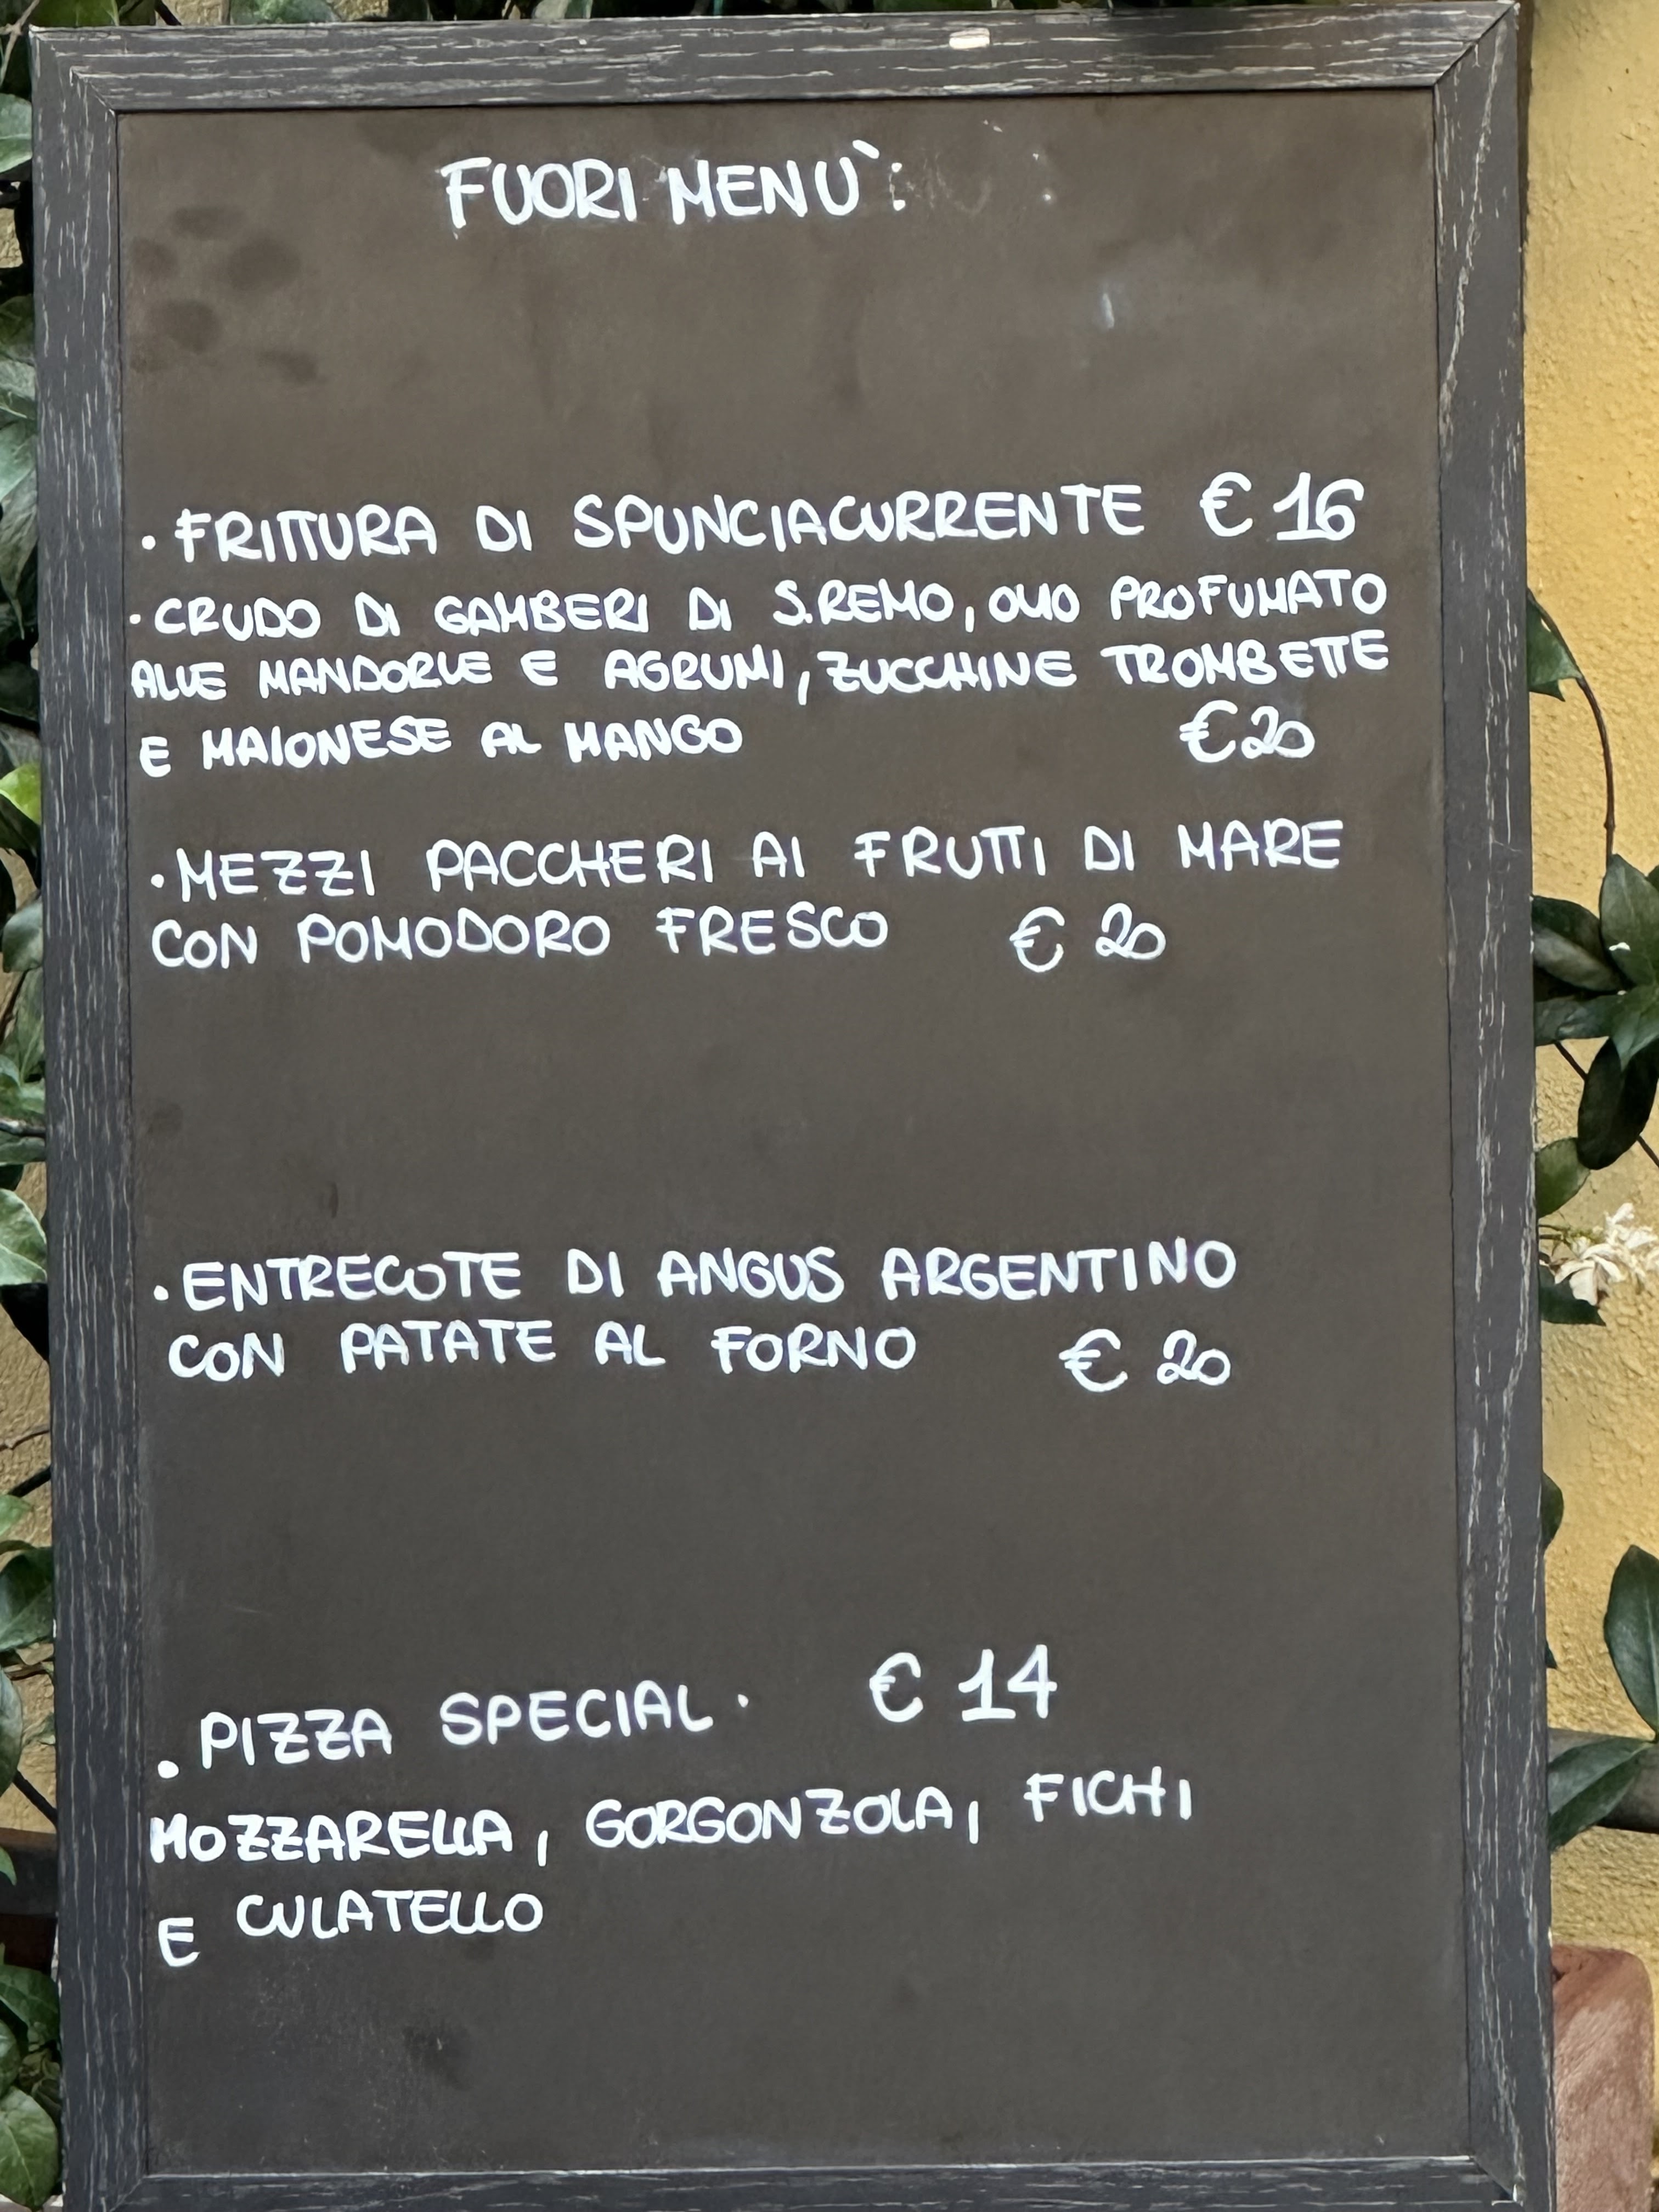 FUORI MENÙ:
· FRITTURA DI SPUNCIACURRENTE € 16
· CRUDO DI GAMBERI DI S.REMO, OLIO PROFUMATO
ALLE MANDORLE E AGRUMI, ZUCCHINE TROMBETTE
E MAIONESE AL MANGO € 20
· MEZZI PACCHERI AI FRUTTI DI MARE
CON POMODORO FRESCO € 20
· ENTRECOTE DI ANGUS ARGENTINO
CON PATATE AL FORNO € 20
· PIZZA SPECIAL · € 14
MOZZARELLA, GORGONZOLA, FICHI
E CULATELLO